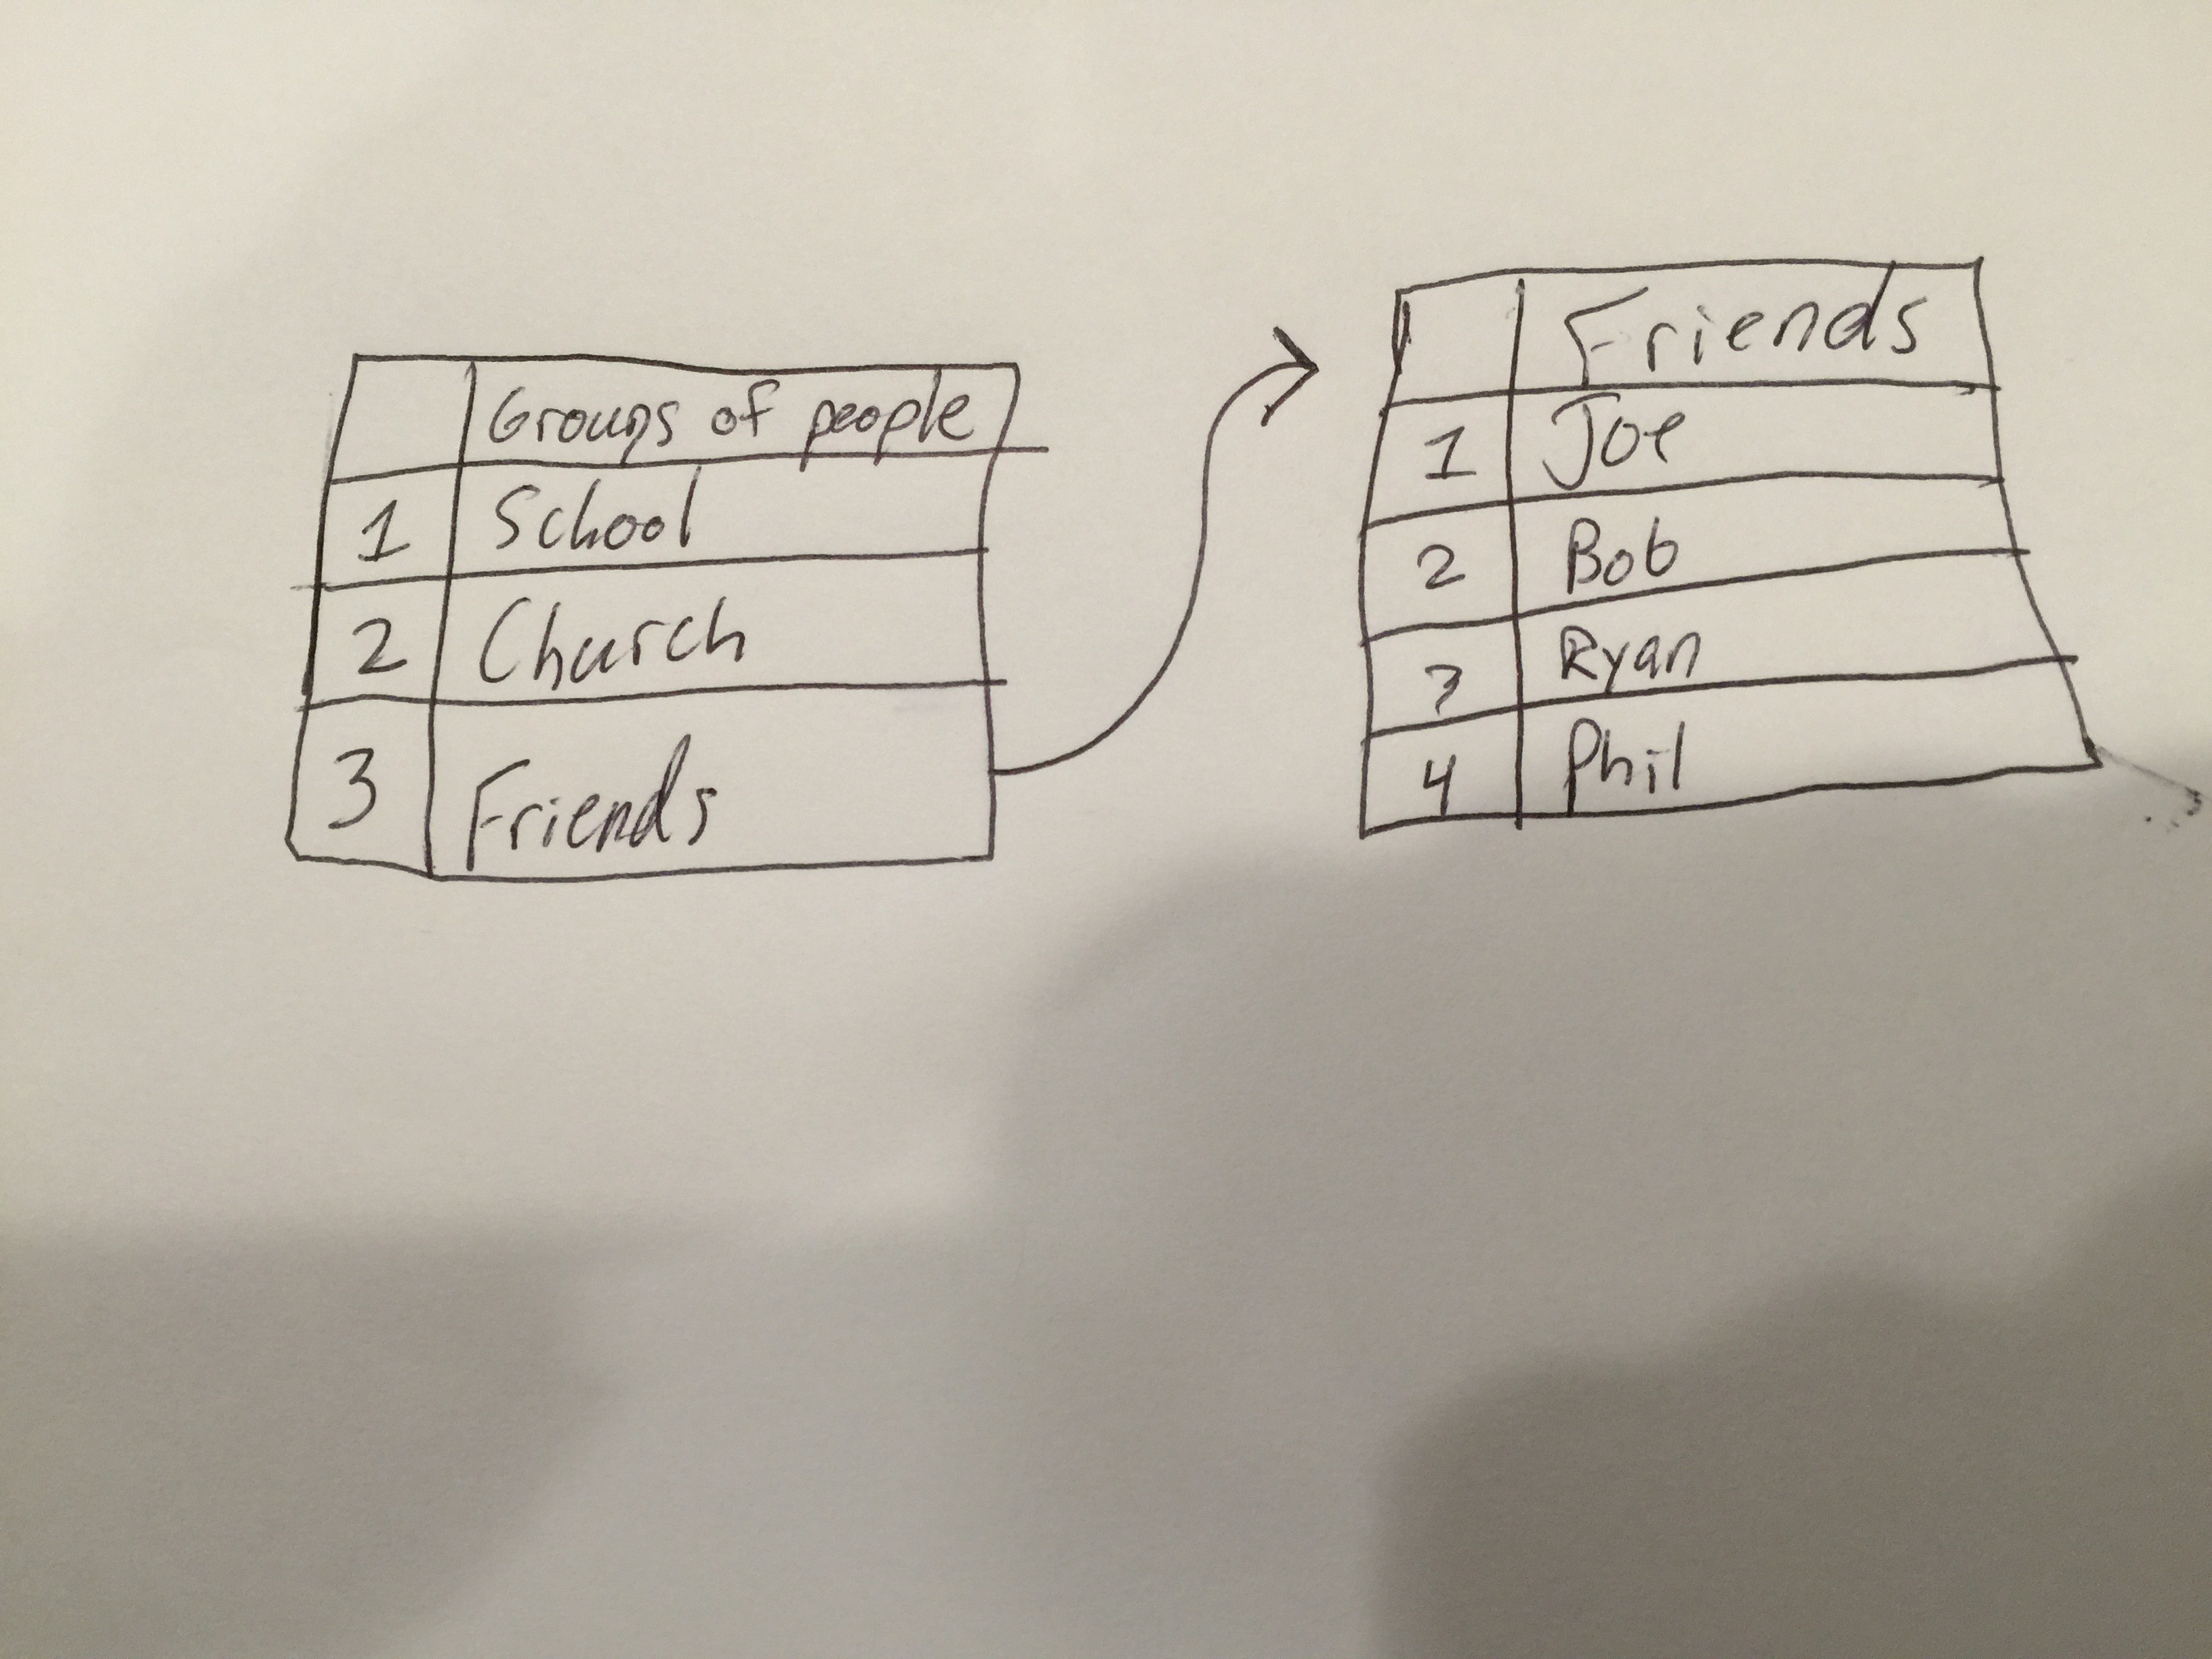 Groups of people
1 School
2 Church
3 Friends
Friends
1 Joe
2 Bob
3 Ryan
4 Phil